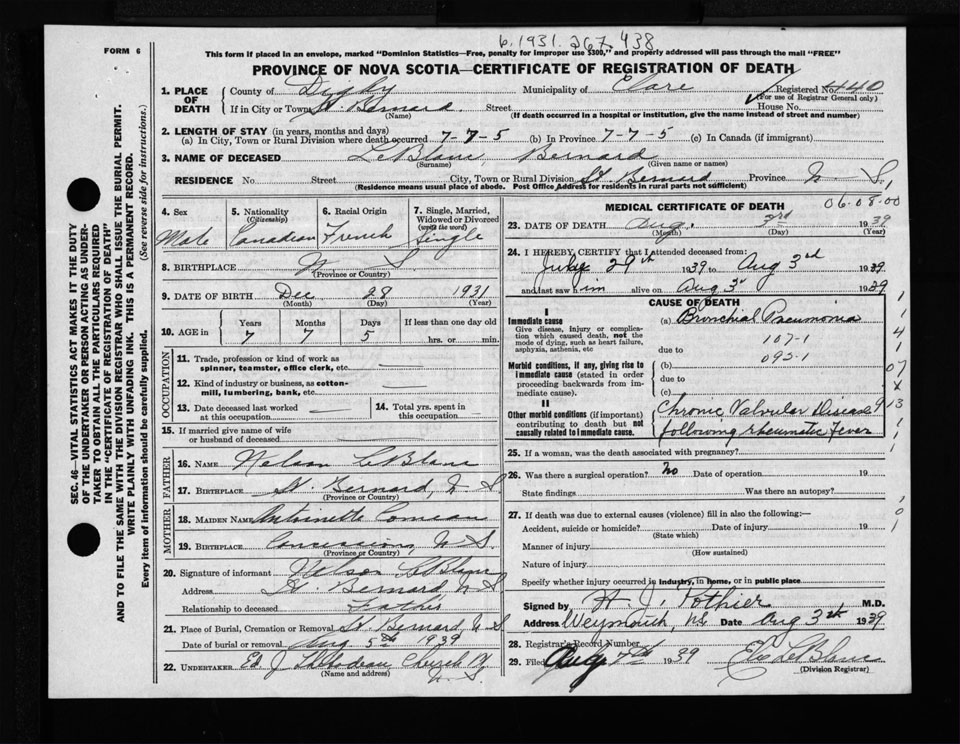 6.1931.267.438
FORM 6
This form if placed in an envelope, marked "Dominion Statistics—Free, penalty for improper use $300," and properly addressed will pass through the mail "FREE"
PROVINCE OF NOVA SCOTIA—CERTIFICATE OF REGISTRATION OF DEATH
1. PLACE OF DEATH
County of Digby Municipality of Clare Registered No. 440
(For use of Registrar General only)
If in City or Town St. Bernard Street House No.
(Name) (If death occurred in a hospital or institution, give the name instead of street and number)
2. LENGTH OF STAY (in years, months and days)
(a) In City, Town or Rural Division where death occurred 7-7-5 (b) In Province 7-7-5 (c) In Canada (if immigrant)
3. NAME OF DECEASED LeBlanc, Bernard
(Surname) (Given name or names)
RESIDENCE No Street City, Town or Rural Division St. Bernard Province N. S.
(Residence means usual place of abode. Post Office Address for residents in rural parts not sufficient)
4. Sex
Male
5. Nationality
(Citizenship)
Canadian
6. Racial Origin
French
7. Single, Married, Widowed or Divorced
(write the word)
Single
8. BIRTHPLACE N. S.
(Province or Country)
9. DATE OF BIRTH Dec 28 1931
(Month) (Day) (Year)
10. AGE in
Years Months Days If less than one day old
7 7 5 hrs. or min.
OCCUPATION
11. Trade, profession or kind of work as
spinner, teamster, office clerk, etc —
12. Kind of industry or business, as cotton-
mill, lumbering, bank, etc. —
13. Date deceased last worked
at this occupation —
14. Total yrs. spent in
this occupation —
15. If married give name of wife
or husband of deceased —
FATHER
16. NAME Nelson LeBlanc
17. BIRTHPLACE St. Bernard, N. S
(Province or Country)
MOTHER
18. MAIDEN NAME Antoinette Comeau
19. BIRTHPLACE Concession, N. S.
(Province or Country)
20. Signature of informant Nelson LeBlanc
Address St. Bernard N S
Relationship to deceased Father
21. Place of Burial, Cremation or Removal St. Bernard, N S
Date of burial or removal Aug 5th 1939
22. UNDERTAKER Ed J Church Pt
N. S.
(Name and address)
MEDICAL CERTIFICATE OF DEATH
06-08-00
23. DATE OF DEATH Aug. 3rd 1939
(Month) (Day) (Year)
24. I HEREBY CERTIFY that I attended deceased from:
July 29th 1939 to Aug 3rd 1939
and last saw him alive on Aug 3rd 1939
CAUSE OF DEATH
I
Immediate cause
Give disease, injury or complica-
tion which caused death, not the
mode of dying, such as heart failure,
asphyxia, asthenia, etc
(a) Bronchial Pneumonia
107-1
due to
092-1
Morbid conditions, if any, giving rise to
immediate cause (stated in order
proceeding backwards from im-
mediate cause).
(b)
due to
(c)
II
Other morbid conditions (if important)
contributing to death but not
causally related to immediate cause.
Chronic Valvular Disease
following rheumatic Fever
25. If a woman, was the death associated with pregnancy?
26. Was there a surgical operation? No Date of operation 19
State findings Was there an autopsy?
27. If death was due to external causes (violence) fill in also the following:—
Accident, suicide or homicide? Date of injury 19
(State which)
Manner of injury
(How sustained)
Nature of injury
Specify whether injury occurred in industry, in home, or in public place
Signed by H. J. Pothier M.D.
Address Weymouth, NS Date Aug 3rd 1939
28. Registrar's Record Number
29. Filed Aug 7th 1939 LeBlanc
(Division Registrar)
SEC. 46—VITAL STATISTICS ACT MAKES IT THE DUTY
OF THE UNDERTAKER OR PERSON ACTING AS UNDER-
TAKER TO OBTAIN ALL THE PARTICULARS REQUIRED
IN THE "CERTIFICATE OF REGISTRATION OF DEATH"
AND TO FILE THE SAME WITH THE DIVISION REGISTRAR WHO SHALL ISSUE THE BURIAL PERMIT.
WRITE PLAINLY WITH UNFADING INK. THIS IS A PERMANENT RECORD.
Every item of information should be carefully supplied. (See reverse side for instructions.)